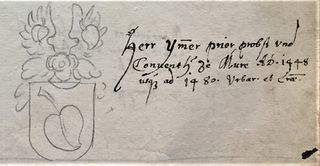 Herr Ymer prior probst vnd
Conuenth ze Mure AD. 1448
usq ad 1480. Vrbar. et